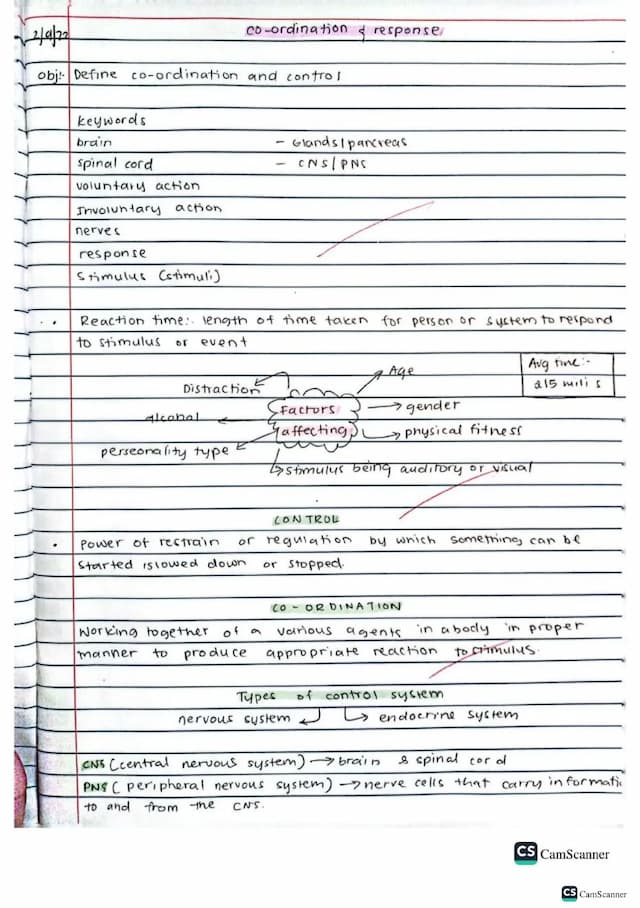 2/9/22
co-ordination & response
obj:- Define co-ordination and control
keywords
brain - Glands/pancreas
spinal cord - CNS/PNS
voluntary action
Involuntary action
nerves
response
Stimulus (stimuli)
Reaction time:- length of time taken for person or system to respond
to stimulus or event
Avg time:-
215 mili s
Age
Distraction
Factors
affecting
gender
alcohol
physical fitness
perseonality type
stimulus being auditory or visual
CONTROL
• Power of restrain or regulation by which something can be
started /slowed down or stopped.
CO-ORDINATION
Working together of a various agents in a body in proper
manner to produce appropriate reaction to stimulus.
Types of control system
nervous system endocrine system
CNS (central nervous system) → brain & spinal cord
PNS (peripheral nervous system) → nerve cells that carry informati
to and from the CNS.
CS CamScanner
CS CamScanner